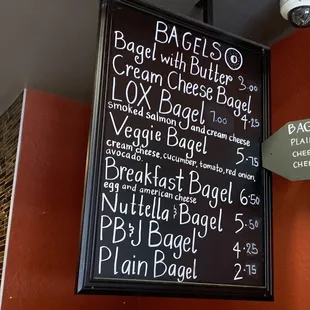 BAGELS
Bagel with Butter 3.00
Cream Cheese Bagel 4.25
LOX Bagel 7.00
smoked salmon and cream cheese
Veggie Bagel 5.75
cream cheese, cucumber, tomato, red onion,
avocado.
Breakfast Bagel 6.50
egg and american cheese
Nuttella & Bagel 5.50
PB&J Bagel 4.25
Plain Bagel 2.75
BAG
PLAI
CHEE
CHE